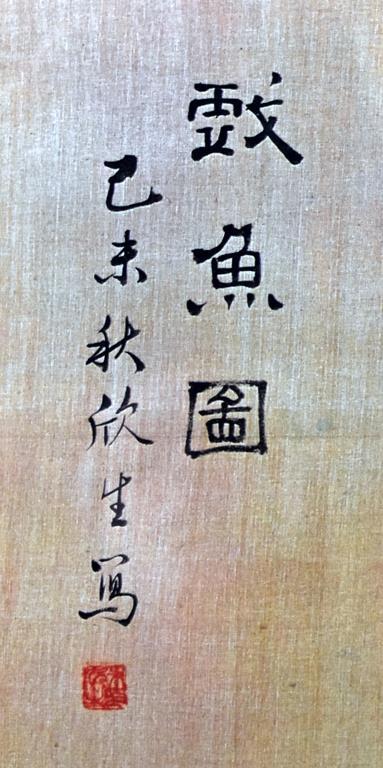 戲魚圖
己未秋欣生寫